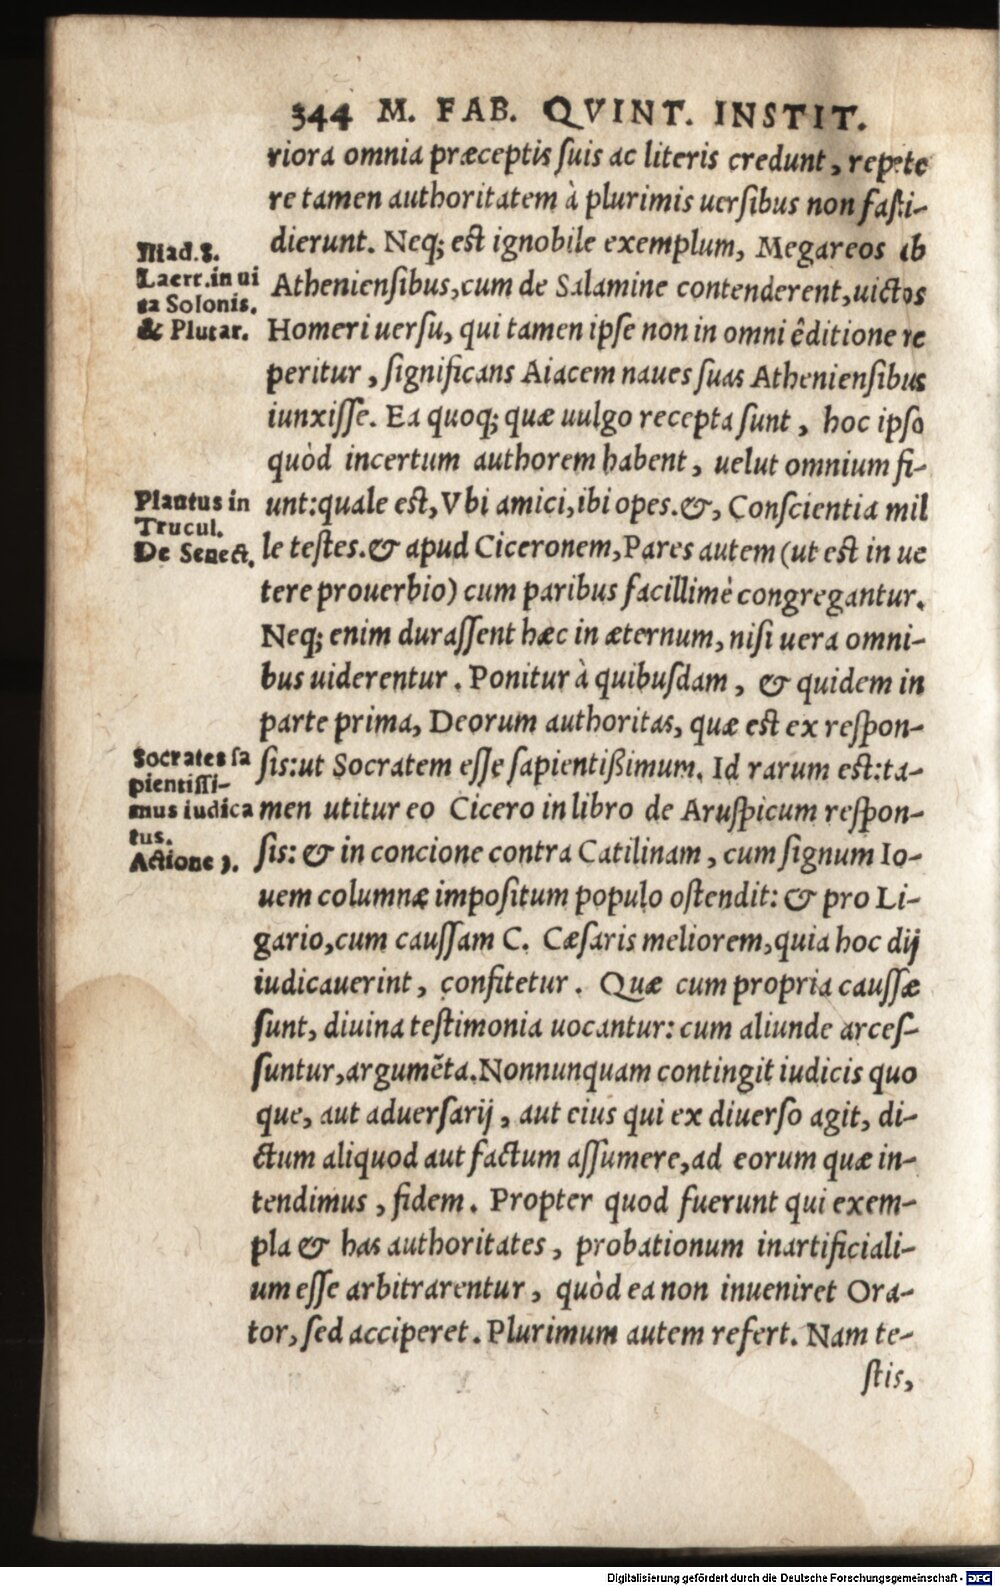 344 M. FAB. QVINT. INSTIT.
riora omnia præceptis ſuis ac literis credunt, repete
re tamen authoritatem à plurimis uerſibus non faſti-
dierunt. Neq; est ignobile exemplum, Megareos ab
Athenienſibus, cum de Salamine contenderent, uictos
Homeri uerſu, qui tamen ipſe non in omni êditione re
peritur, ſignificans Aiacem naues ſuas Athenienſibus
iunxiſſe. Ea quoq; quæ uulgo recepta ſunt, hoc ipſo
quòd incertum authorem habent, uelut omnium fi-
unt: quale est, Vbi amici, ibi opes. &, Conſcientia mil
le teſtes. & apud Ciceronem, Pares autem (ut est in ue
tere prouerbio) cum paribus facillimè congregantur.
Neq; enim duraſſent hæc in æternum, niſi uera omni-
bus uiderentur. Ponitur à quibuſdam, & quidem in
parte prima, Deorum authoritas, quæ est ex reſpon-
ſis: ut Socratem eſſe ſapientißimum. Id rarum est: ta-
men utitur eo Cicero in libro de Aruſpicum reſpon-
ſis: & in concione contra Catilinam, cum ſignum Io-
uem columnæ impoſitum populo oſtendit: & pro Li-
gario, cum cauſſam C. Cæſaris meliorem, quia hoc dij
iudicauerint, confitetur. Quæ cum propria cauſſæ
ſunt, diuina teſtimonia uocantur: cum aliunde arceſ-
ſuntur, argumẽta. Nonnunquam contingit iudicis quo
que, aut aduerſarij, aut eius qui ex diuerſo agit, di-
ctum aliquod aut factum aſſumere, ad eorum quæ in-
tendimus, fidem. Propter quod fuerunt qui exem-
pla & has authoritates, probationum inartificiali-
um eſſe arbitrarentur, quòd ea non inueniret Ora-
tor, ſed acciperet. Plurimum autem refert. Nam te-
ſtis,
Iliad. 8.
Laert. in ui
ta Solonis.
& Plutar.
Plautus in
Trucul.
De Senect.
Socrates ſa
pientiſſi-
mus iudica
tus.
Actione 3.
Digitalisierung gefördert durch die Deutsche Forschungsgemeinschaft - DFG